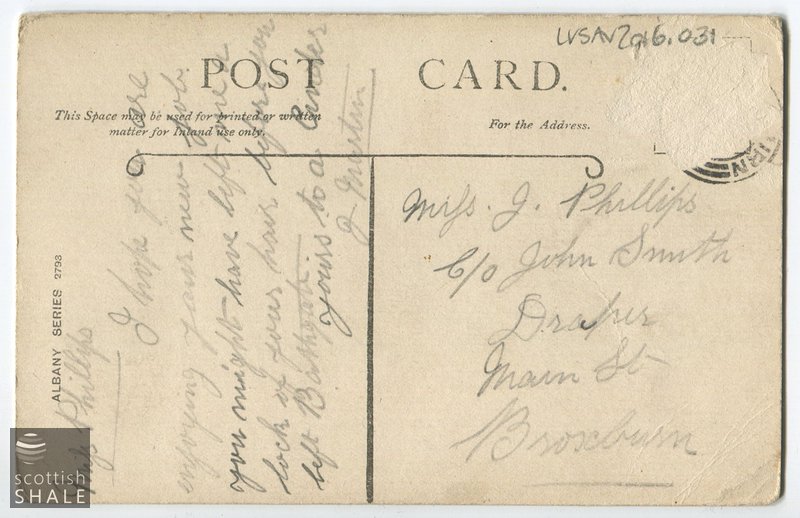 LVSAV2016.031
POST CARD.
This Space may be used for printed or written
matter for Inland use only.
For the Address.
ALBANY SERIES 2793
Miss Phillips
I hope you are
enjoying your new job
you might have left me a
lock of your hair before you
left Bathgate.
yours to a
J Martin
Miss. J. Phillips
C/o John Smith
Draper
Main St
Broxburn
scottish
SHALE